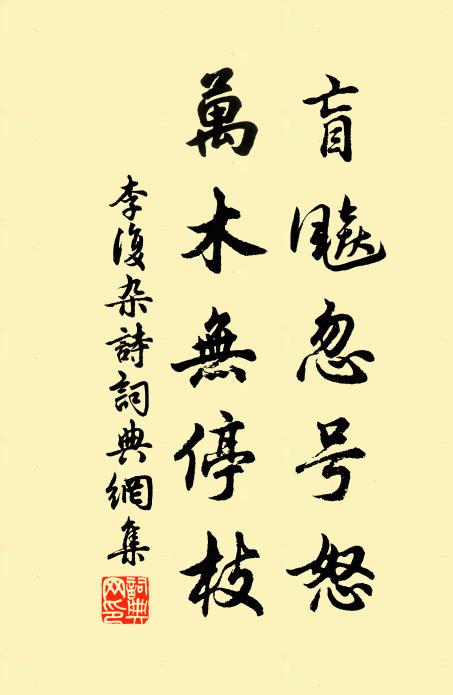 盲飈忽号怒
萬木無停枝
李復杂詩詞典網集
詞典网印